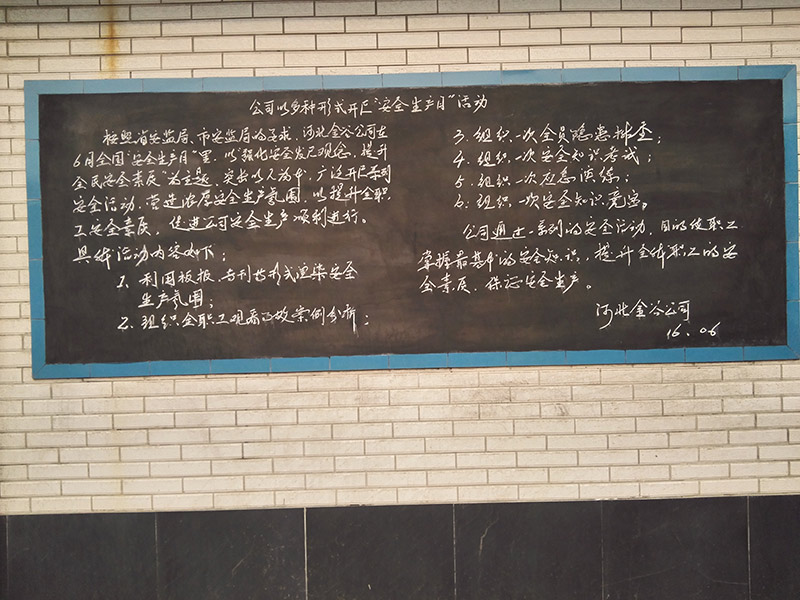 公司以多种形式开展"安全生产月"活动
按照省安监局、市安监局的要求,河北金谷公司在
6月全国"安全生产月"里,以"强化安全发展观念,提升
全民安全素质"为主题,突出以人为本,广泛开展系列
安全活动,营造浓厚安全生产氛围,以提升全职
工安全素质,促进公司安全生产顺利进行。
具体活动内容如下:
1、利用板报、专刊等形式渲染安全
生产氛围;
2、组织全职工观看事故案例分析;
3、组织一次全员隐患排查;
4、组织一次安全知识考试;
5、组织一次应急演练;
6、组织一次安全知识竞赛。
公司通过一系列的安全活动,目的使职工
掌握最基本的安全知识,提升全体职工的安
全素质,保证安全生产。
河北金谷公司
16.06